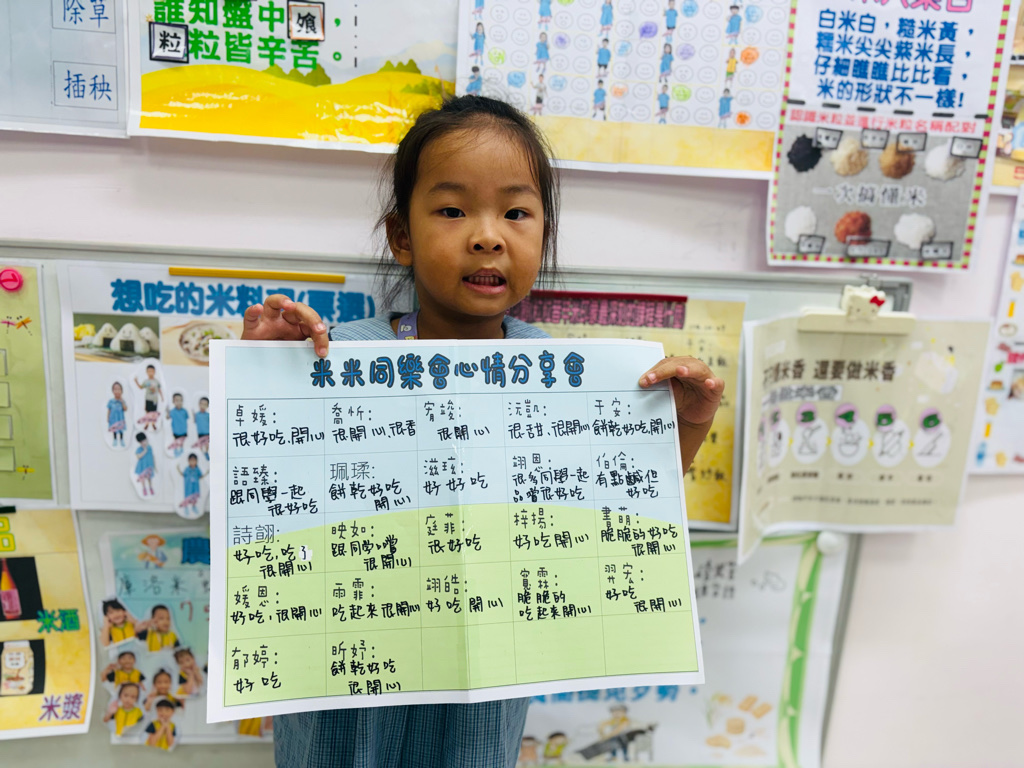 除草
插秧
誰知盤中飧，
粒粒皆辛苦。
白米白，糙米黃，
糯米尖尖紫米長，
仔細瞧瞧比比看，
米的形狀不一樣!
認識米粒並進行米粒名稱配對
一次搞懂米
想吃的米料
還要做米香
米米同樂會心情分享會
卓媛:
很好吃、開心
喬忻:
很開心、很香
宥竣:
很開心
沅凱:
很甜、很開心
千安:
餅乾好吃、開心
語臻:
跟同學一起
很好吃
珮瑈:
餅乾好吃
開心
滋玹:
好好吃
翊恩:
很多同學一起
品嚐很好吃
佰倫:
有點鹹但
好吃
詩翩:
好吃、吃了
很開心
映如:
跟同學嚐
很開心
庭菲:
很好吃
梓揚:
好吃開心
書萌:
脆脆的好吃
很開心
媛恩:
好吃，很開心
雨霏:
吃起來很開心
翊皓:
好吃開心
寬霖:
脆脆的
吃起來開心
羿宏:
好吃
很開心
郁婷:
好吃
昕妤:
餅乾好吃
很開心
米酒
米漿